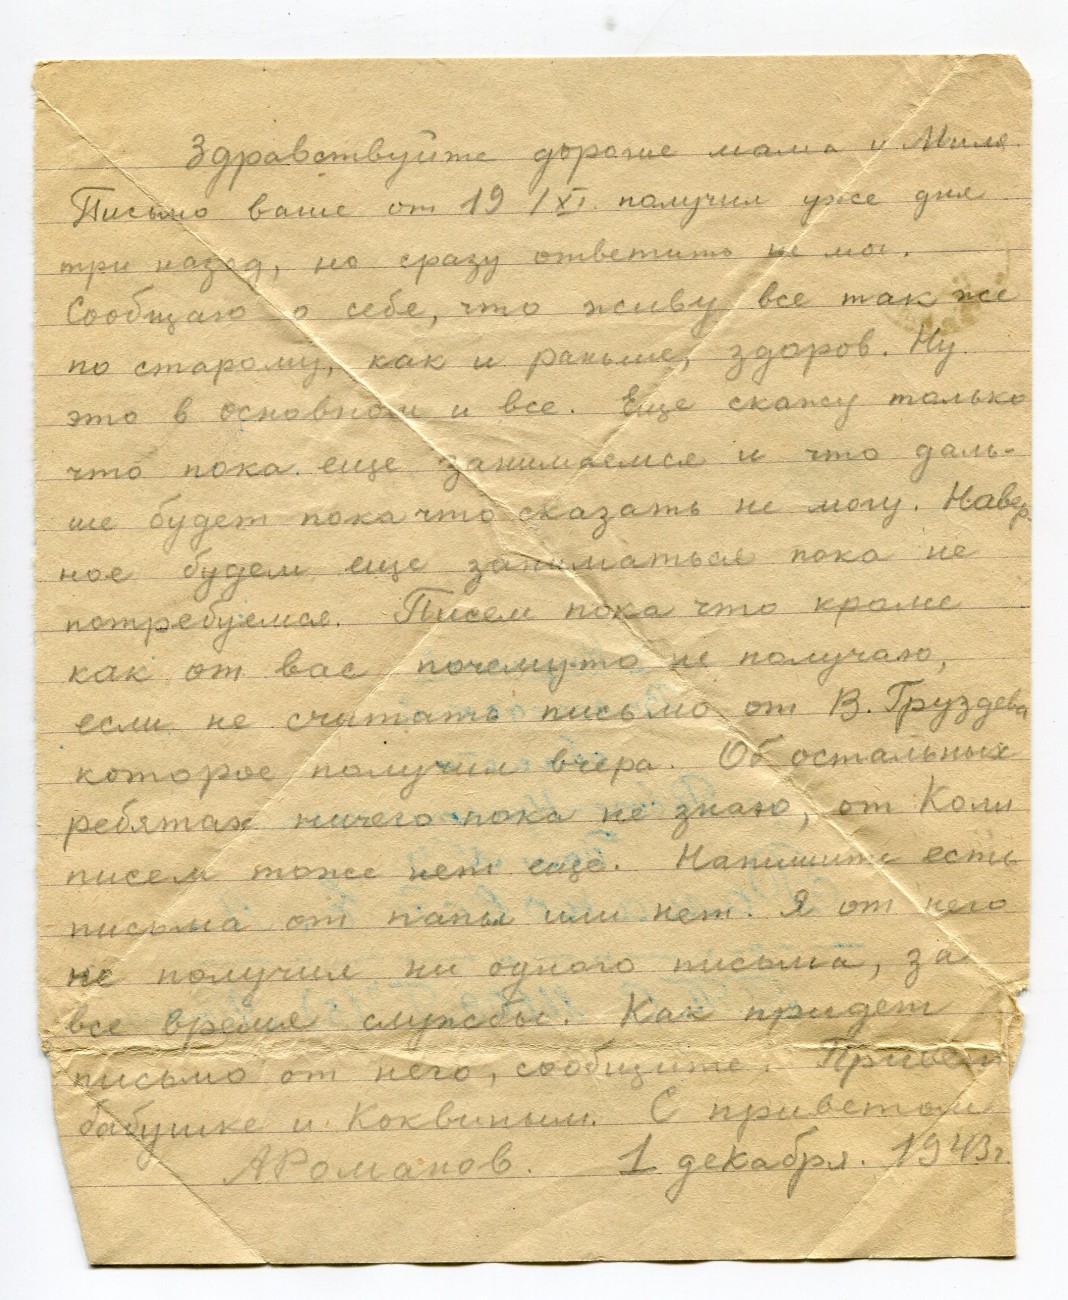 Здравствуйте дорогие мама и Миля.
Письмо ваше от 19/XI. получил уже дня
три назад, но сразу ответить не мог.
Сообщаю о себе, что живу все так же
по старому, как и раньше, здоров. Ну
это в основном и все. Еще скажу только
что пока еще занимаемся и что даль-
ше будет пока что сказать не могу. Навер-
ное будем еще заниматься пока не
потребуемся. Писем пока что кроме
как от вас почему-то не получаю,
если не считать письмо от В. Груздева
которое получил вчера. Об остальных
ребятах ничего пока не знаю, от Коли
писем тоже нет еще. Напишите есть
письма от папы или нет. Я от него
не получил ни одного письма, за
все время службы. Как придет
письмо от него, сообщите. Привет
бабушке и Коквиным. С приветом
АРоманов. 1 декабря. 1943г.